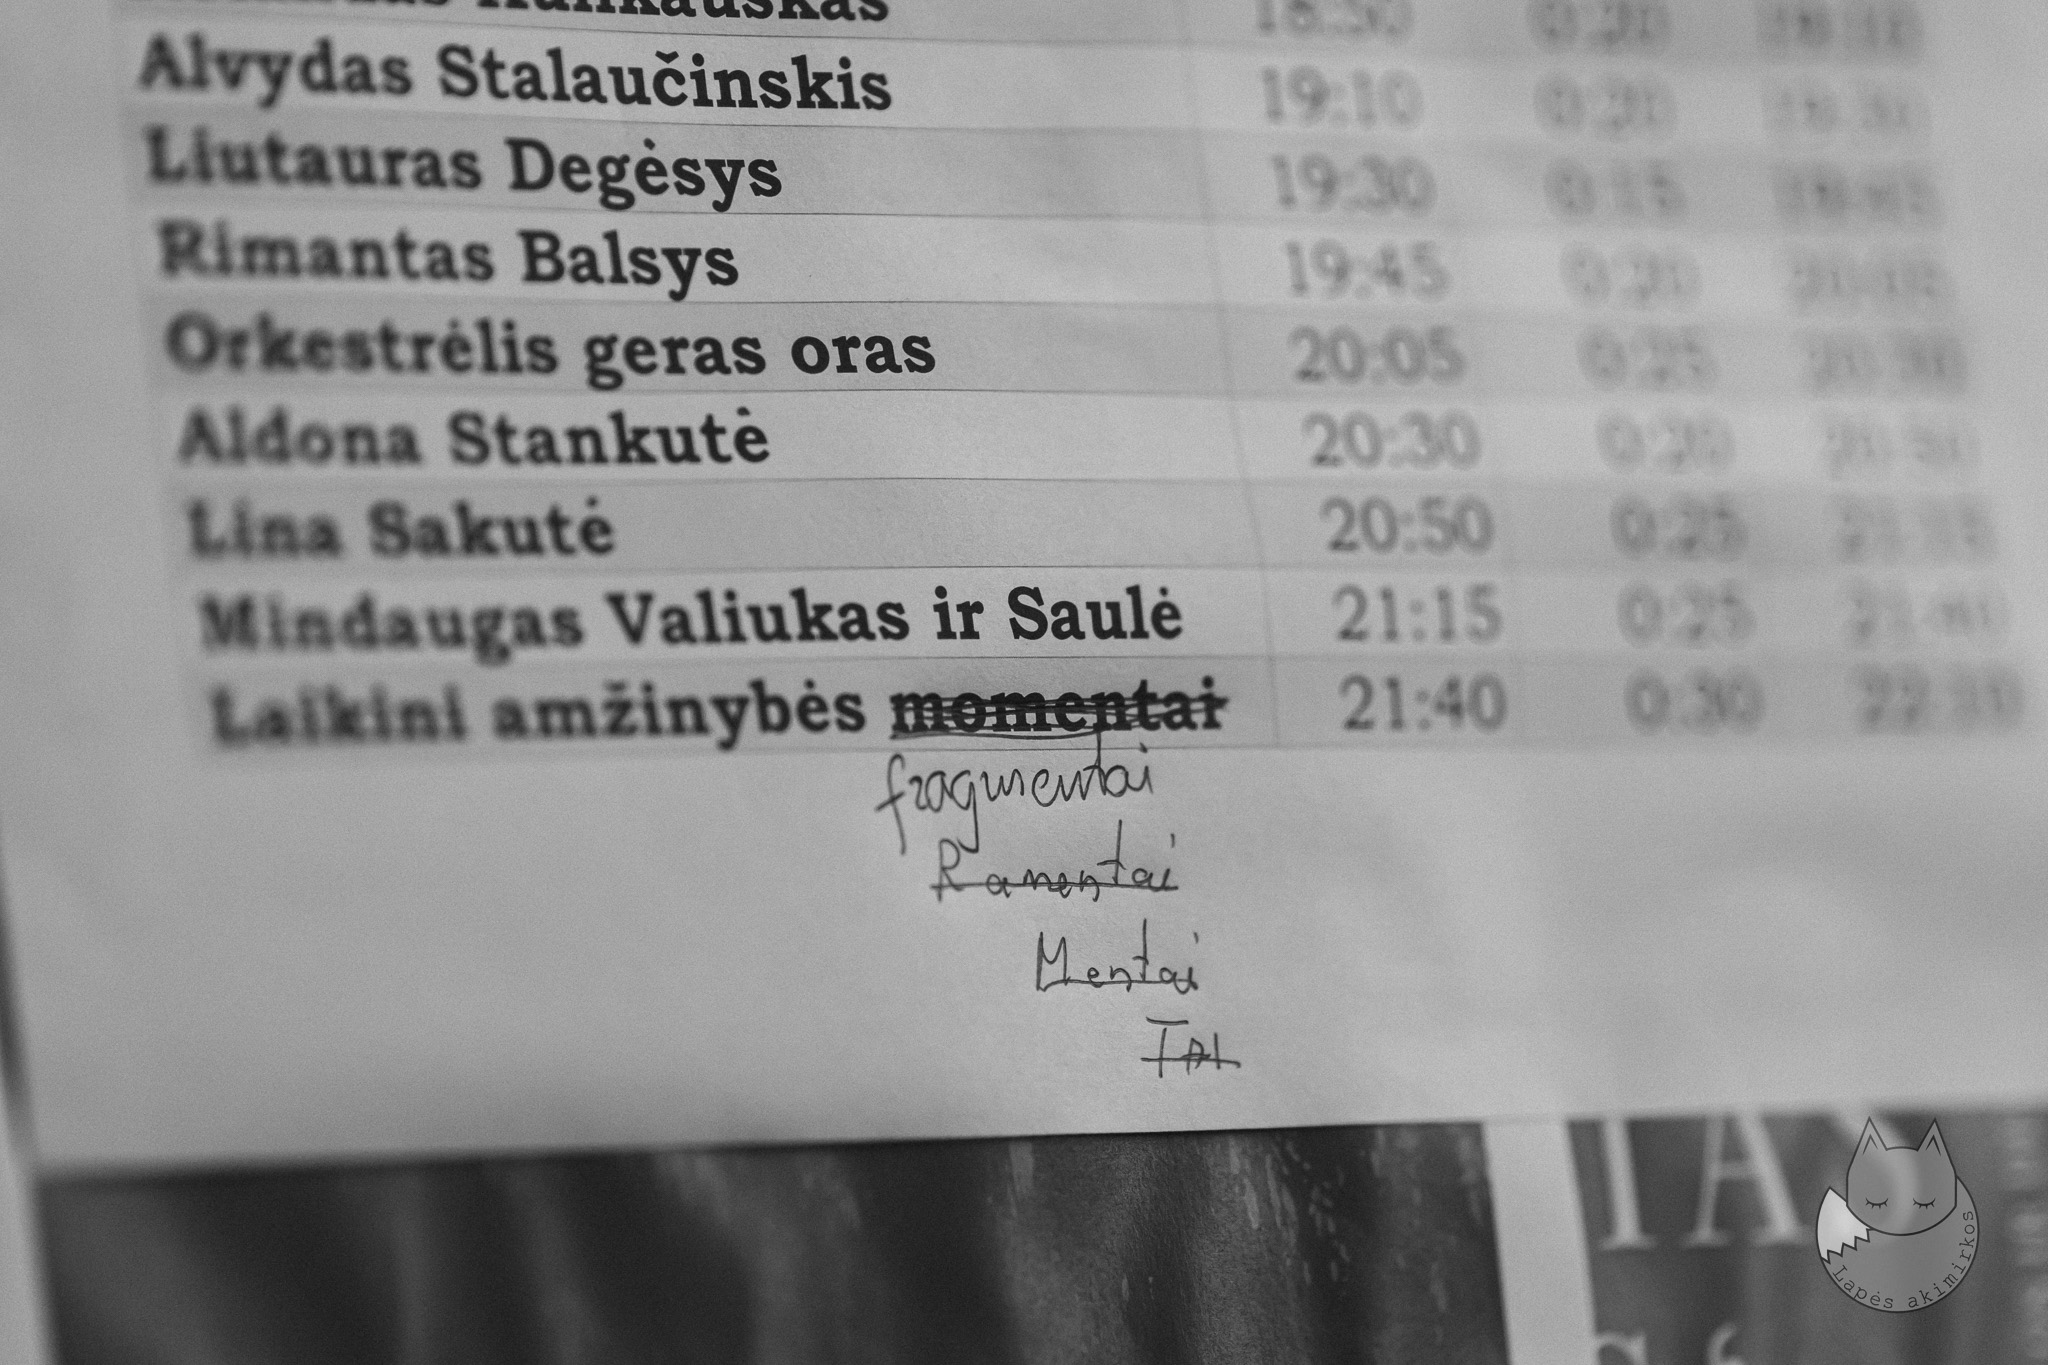 Alvydas Stalaučinskis 19:10 0:20
Liutauras Degėsys 19:30 0:15
Rimantas Balsys 19:45 0:20
Orkestrėlis geras oras 20:05 0:25
Aldona Stankutė 20:30 0:20
Lina Sakutė 20:50 0:25
Mindaugas Valiukas ir Saulė 21:15 0:25
Laikini amžinybės momentai 21:40 0:30
fragmentai
Ramentai
Mentai
TAI
TAS
Lapės akimirkos